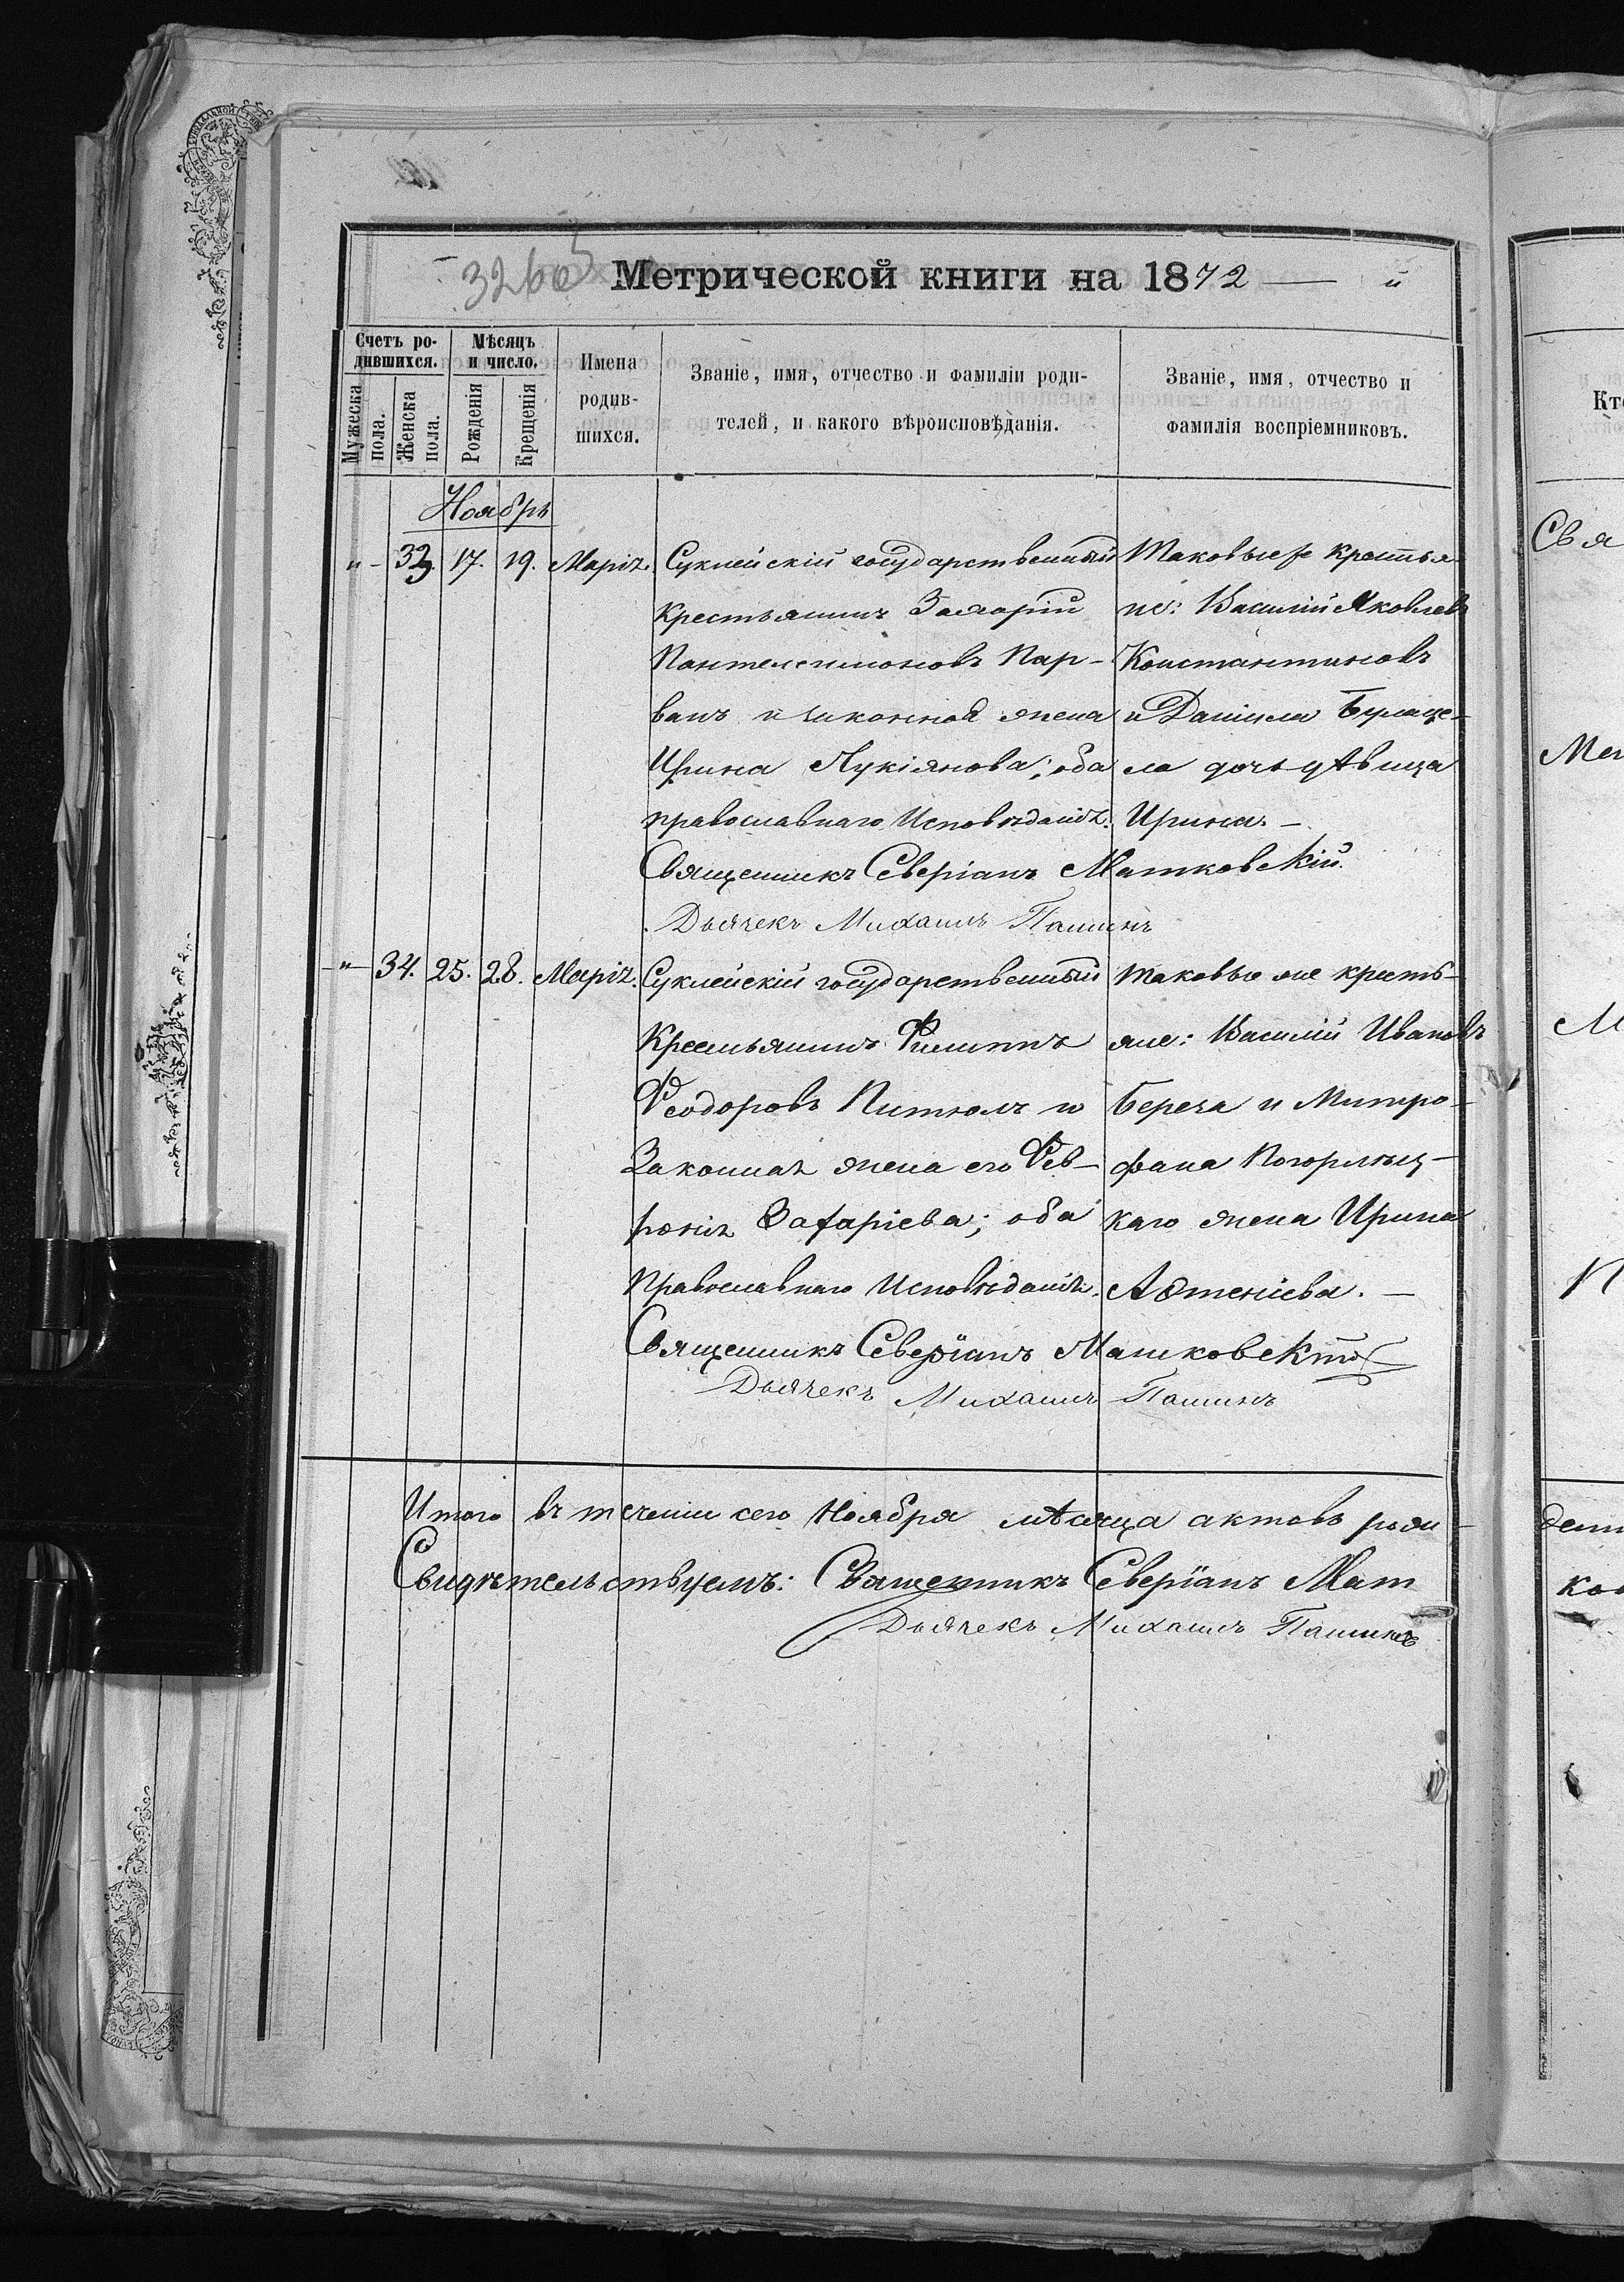 326об
Метрической книги на 1872 — й
Счетъ ро-
дившихся.
Мѣсяцъ
и число.
Мужеска
пола.
Женска
пола.
Рожденія
Крещенія
Имена
родив-
шихся.
Званіе, имя, отчество и фамиліи роди-
телей, и какого вѣроисповѣданія.
Званіе, имя, отчество и
фамилія воспріемниковъ.
Кто
Ноябрь
"- 33. 17. 19. Марія.
Суклейскій государственный
крестьянинъ Захарій
Пантелеимоновъ Пар-
ванъ и законная жена
Ирина Лукіянова; оба
православнаго Исповѣданія.
Таковые же крестья-
не: Василій Яковлевъ
Константиновъ
и Даніила
ла дочь дѣвица
Ирина. —
Священникъ Северіанъ Матковскій.
Дьячекъ Михаилъ
-"- 34. 25. 28. Марія.
Суклейскій государственный
Крестьянинъ Филиппъ
Феодоровъ и
Законная жена его Фев-
ронія Захаріева; оба
Православнаго Исповѣданія.
таковые же кресть-
яне: Василій Ивановъ
и Митро-
фана
каго жена Ирина
—
Священникъ Северіанъ Матковскій
Дьячекъ Михаилъ
Итого въ теченіи сего Ноября мѣсяца актовъ рож-
Свидѣтельствуемъ: Священникъ Северіанъ Мат
Дьячекъ Михаилъ
Свя
М
П
ков